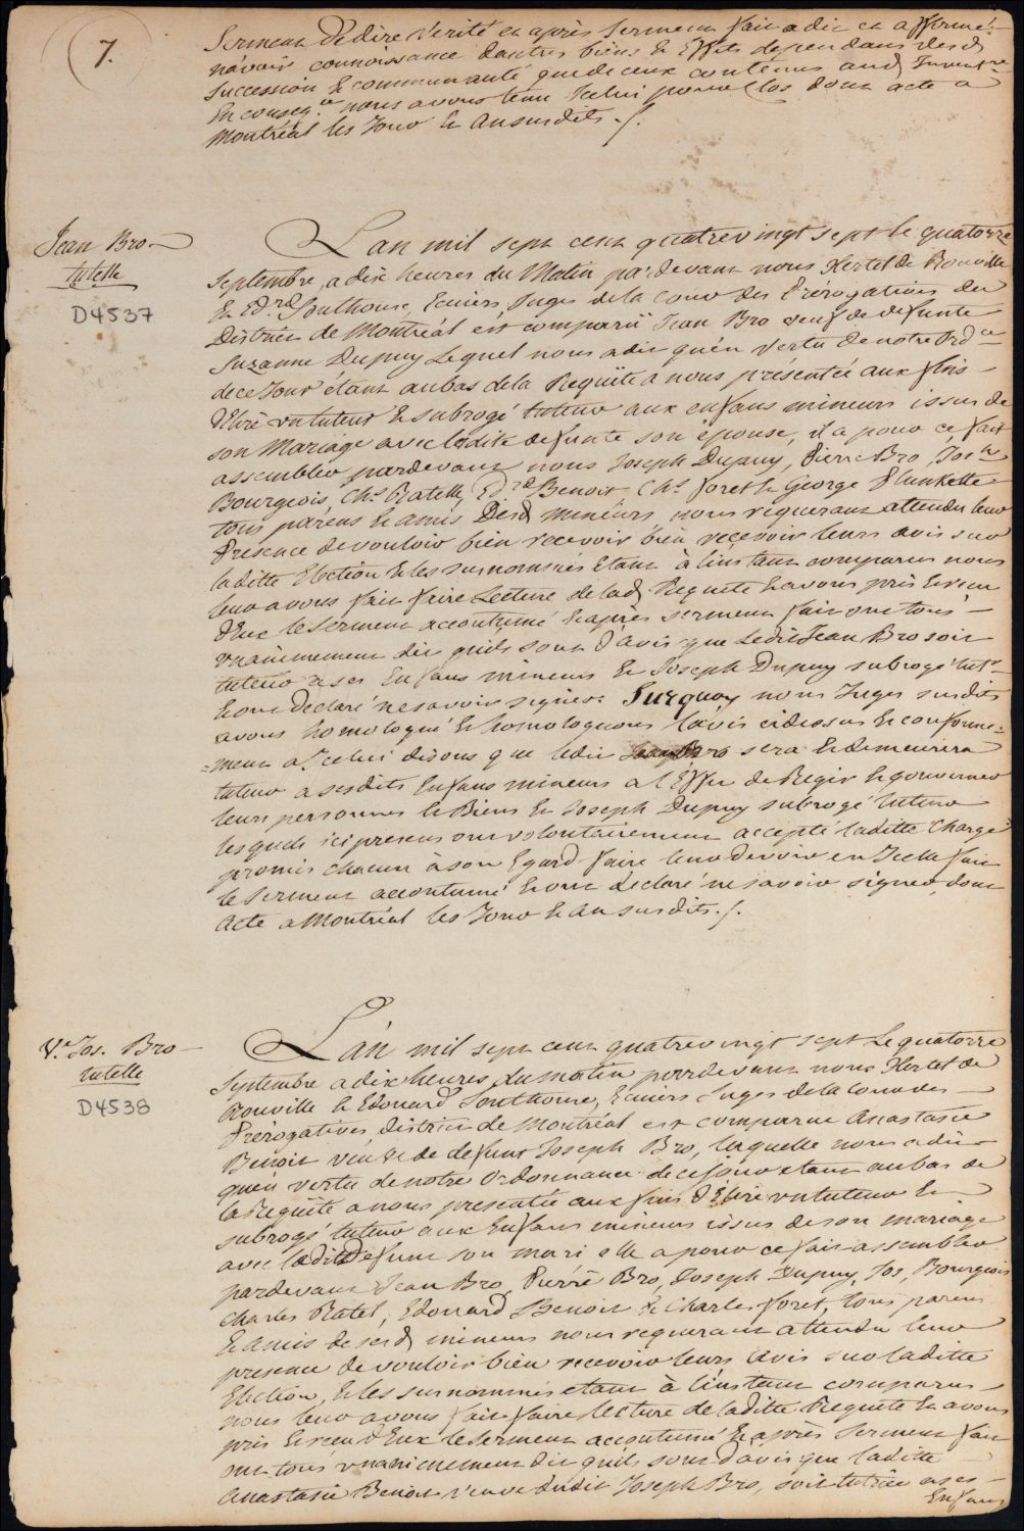 7.
Serment de dire Vérité et après Serment fait a dit et affirmé
n'avoir connoissance d'autres biens & Effets dependans desd.
Succession & communauté que de ceux contenus aud. Inventre.
En conseqce. nous avons tenu Icelui pour Clos dont acte a
Montréal les Jour & An susdits ./.
Jean Bro
tutelle
D4537
L'an mil sept cent quatrevingt sept le quatorze
Septembre a dix heures du Matin pardevant nous Hertel de Rouville
& Edrd. Southouse, Ecuiers, Juges de la Cour des Prérogatives du
District de Montréal est comparu Jean Bro veuf de defunte
Suzanne Dupuy Lequel nous a dit qu'en Vertu de notre Ordce
de ce Jour étant au bas de la Requête a nous présentée aux fins
d'Elire un tuteur & subrogé tuteur aux enfans mineurs issus de
son Mariage avec ladite defunte son épouse, il a pour ce fait
assembler pardevant nous Joseph Dupuy, Pierre Bro, Josh
Bourgeois, Chs. Ratelle, Edrd. Benoit, Chs. foret & George Plunkette
tous parens & amis Desd. mineurs, nous requerant attendu leur
Presence de vouloir bien recevoir bien recevoir leurs avis sur
laditte Election & les surnommés Etant à l'instant comparus nous
leur avons fait faire Lecture de lad. Requete & avons pris & recu
d'Eux le Serment accoutumé & après serment fait ont tous
unanimement dit qu'ils sont d'avis que Ledit Jean Bro soit
tuteur a ses Enfans mineurs & Joseph Dupuy subrogé tutr.
& ont declaré ne savoir signer. Surquoy nous Juges susdits
avons homologué & homologuons l'avis cidessus & conforme=
=ment a Icelui disons que ledit Jean Bro sera & demeurera
tuteur a sesdits Enfans mineurs a l'Effet de Regir & gouverner
leurs personnes & Biens & Joseph Dupuy subrogé tuteur
lesquels ici presens ont volontairement accepté laditte Charge
promis chacun à son Egard faire leur devoir en Icelle fait
le serment accoutumé & ont declaré ne savoir signer dont
Acte a Montréal les Jour & An susdits ./.
Ve. Jos. Bro
tutelle
D4538
L'an mil sept cent quatrevingt sept Le quatorze
Septembre a dix heures du matin pardevant nous Hertel de
Rouville & Edouard Southouse, Ecuiers Juges de la Cour des
Prérogatives, district de Montréal est comparue Anastasie
Benoit veuve de defunt Joseph Bro, laquelle nous a dit
qu'en vertu de notre Ordonnance de ce Jour etant au bas de
la Requête a nous presentée aux fins d'Elire un tuteur &
subrogé tuteur aux Enfans mineurs issus de son mariage
avec ledit defunt son mari elle a pour ce fait assembler
pardevant Jean Bro, Pierre Bro, Joseph Dupuy, Jos. Bourgeois
Charles Ratel, Edouard Benoit & Charles foret, tous parens
& amis de sesd. mineurs nous requerant attendu leur
presence de vouloir bien recevoir leurs avis sur laditte
Election, & les surnommés etant à l'instant comparus
nous leur avons fait faire lecture de laditte Requete & avons
pris & recu d'Eux le Serment accoutumé & après Serment fait
ont tous unanimement dit qu'ils sont d'avis que laditte
Anastasie Benoit veuve dudit Joseph Bro, soit tutrice a ses
Enfans